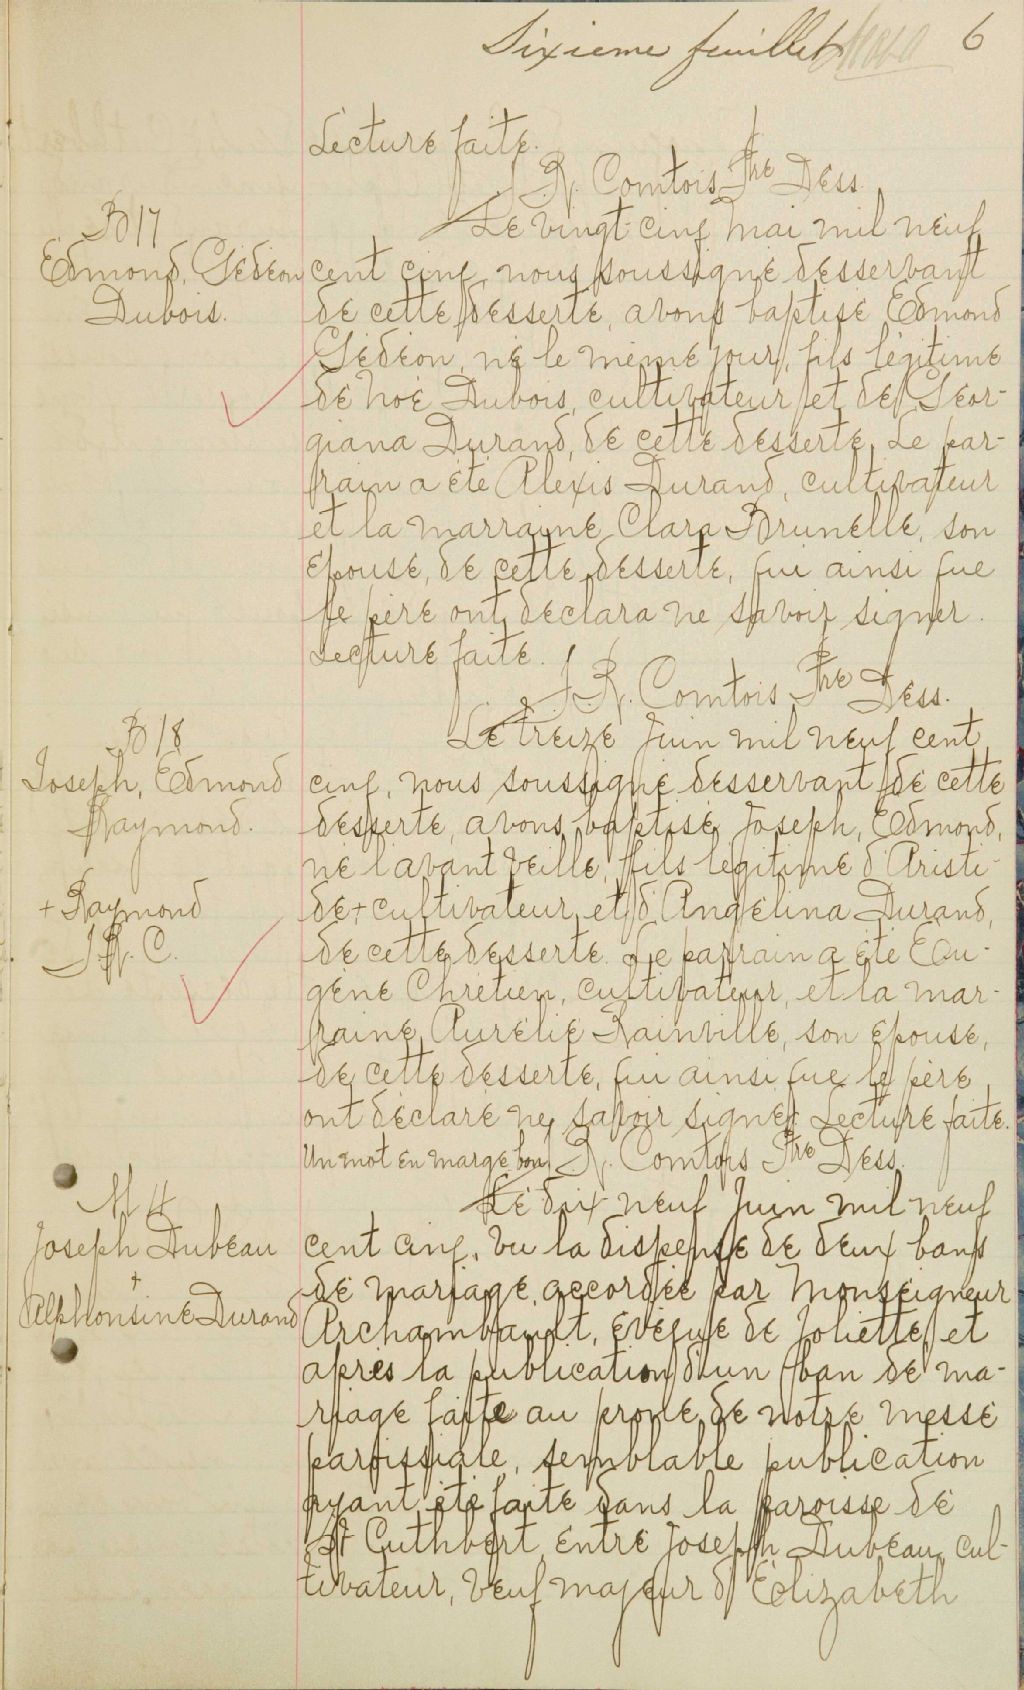 Sixieme feuillet 6
Lecture faite.
J. R. Comtois Ptre Dess.
B 17
Edmond, Gédéon
Dubois.
Le vingt-cinq Mai mil neuf
cent cinq, nous soussigné desservant
de cette desserte, avons baptisé Edmond
Gédéon, né le même jour, fils légitime
de Noé Dubois, cultivateur et de Geor-
giana Durand, de cette desserte. Le par-
rain a été Alexis Durand, cultivateur
et la marraine Clara Brunelle, son
épouse, de cette desserte, qui ainsi que
le père ont déclara ne savoir signer.
Lecture faite.
J. R. Comtois Ptre Dess.
B 18
Joseph, Edmond
Raymond.
+ Raymond
J. R. C.
Le treize Juin mil neuf cent
cinq, nous soussigné desservant de cette
desserte, avons baptisé Joseph, Edmond,
né l'avant veille, fils légitime d'Aristi-
de + cultivateur et d'Angélina Durand,
de cette desserte. Le parrain a été Eu-
gène Chrétien, cultivateur, et la mar-
raine Aurélie Rainville, son épouse,
de cette desserte, qui ainsi que le père
ont déclaré ne savoir signer. Lecture faite.
Un mot en marge bon J. R. Comtois Ptre Dess.
M 4
Joseph Dubeau
+
Alphonsine Durand
Le dix-neuf Juin mil neuf
cent cinq, vu la dispense de deux bans
de mariage, accordée par Monseigneur
Archambault, évêque de Joliette, et
après la publication d'un ban de ma-
riage faite au prône de notre messe
paroissiale, semblable publication
ayant été faite dans la paroisse de
St Cuthbert, entre Joseph Dubeau, cul-
tivateur, veuf majeur d'Elizabeth